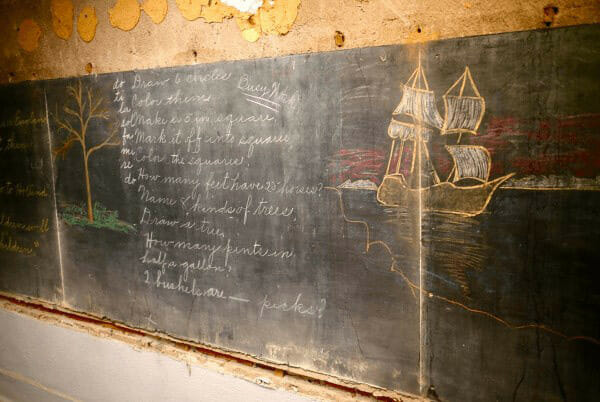 do Draw 6 circles Busy
ti Color them
la
so Make a 5 in. square
fa Mark it off into squares
mi Color the squares.
re
do How many feet have 25 horses?
Name kinds of trees.
Draw a tree.
How many pints in
half a gallon?
2 bushels are — picks?